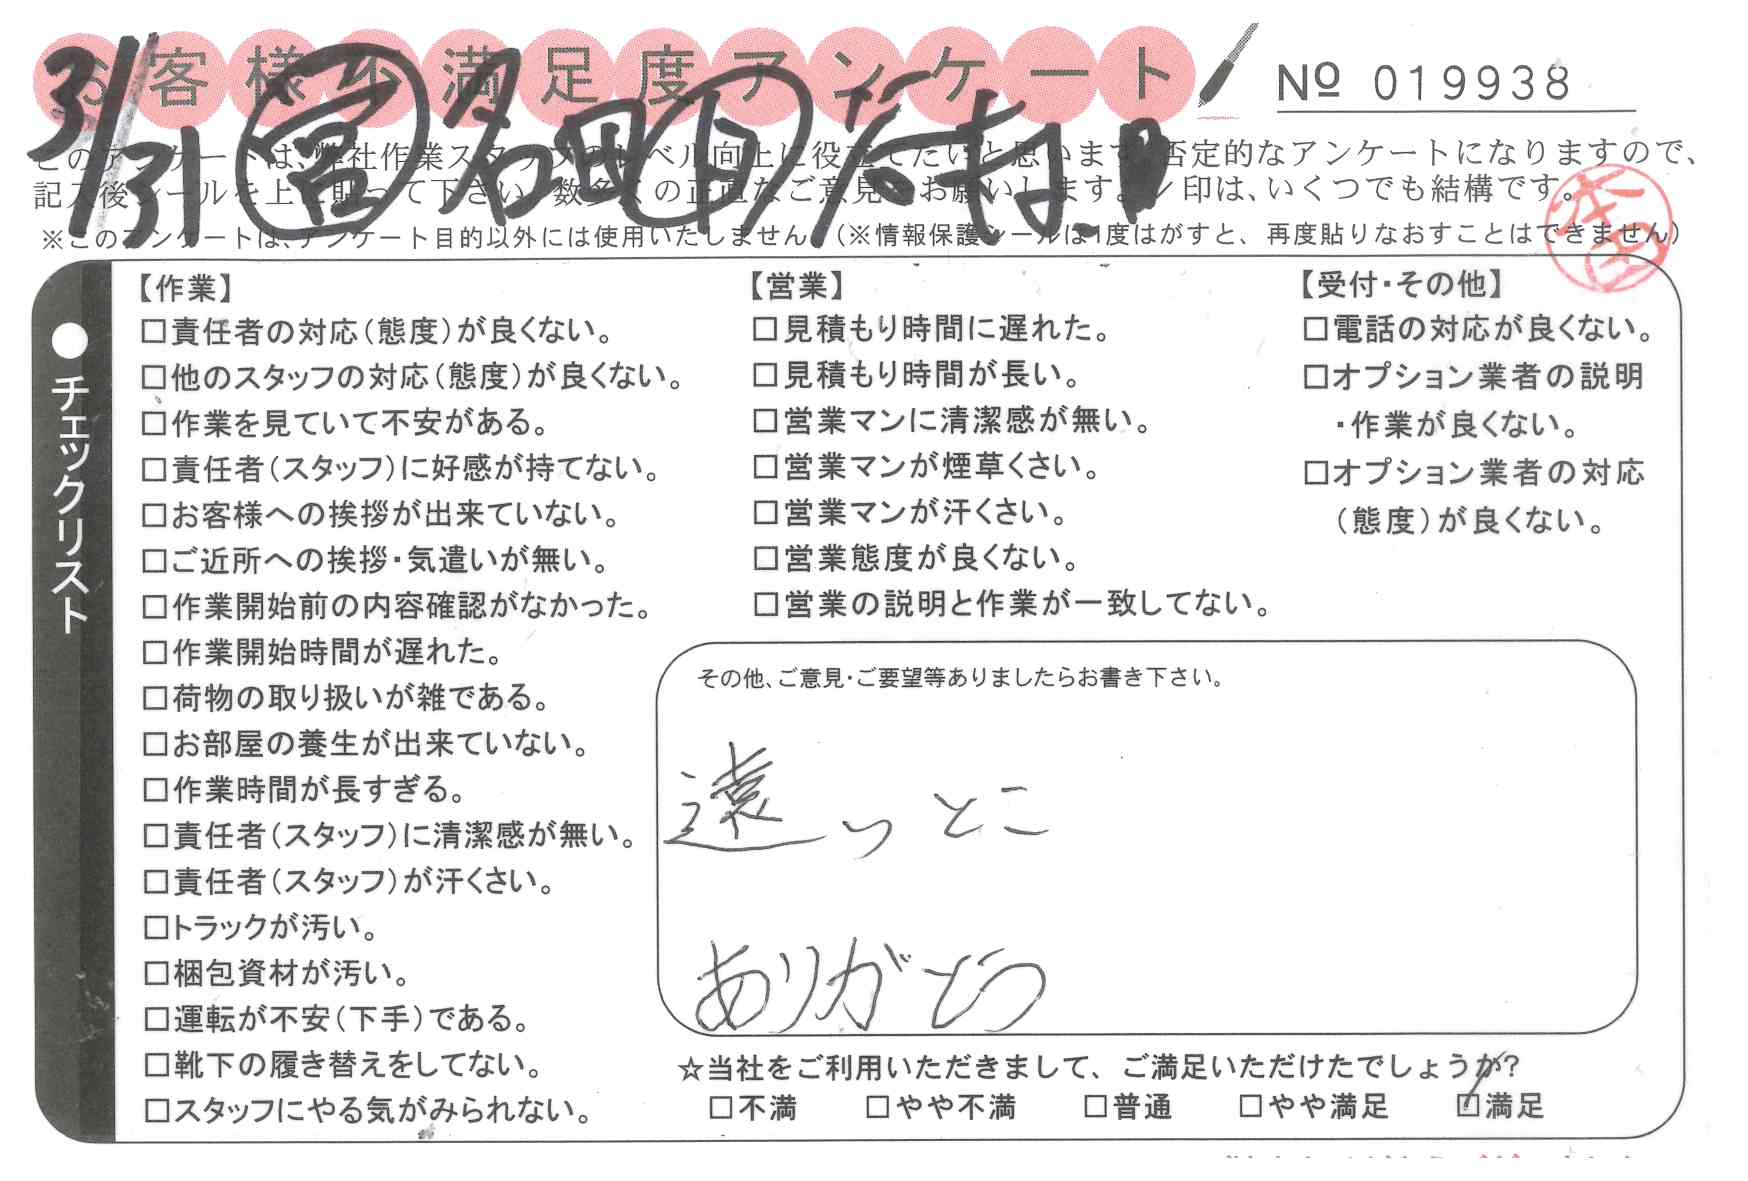 お客様不満足度アンケート
№ 019938
3/31 営 名田 自 竹村
このアンケートは、弊社作業スタッフのレベル向上に役立てたいと思います。否定的なアンケートになりますので、
記入後シールを上に貼って下さい。数多くの正直なご意見をお願いします。✓印は、いくつでも結構です。
※このアンケートは、アンケート目的以外には使用いたしません。(※情報保護シールは1度はがすと、再度貼りなおすことはできません)
本田
●チェックリスト
【作業】
□責任者の対応(態度)が良くない。
□他のスタッフの対応(態度)が良くない。
□作業を見ていて不安がある。
□責任者(スタッフ)に好感が持てない。
□お客様への挨拶が出来ていない。
□ご近所への挨拶・気遣いが無い。
□作業開始前の内容確認がなかった。
□作業開始時間が遅れた。
□荷物の取り扱いが雑である。
□お部屋の養生が出来ていない。
□作業時間が長すぎる。
□責任者(スタッフ)に清潔感が無い。
□責任者(スタッフ)が汗くさい。
□トラックが汚い。
□梱包資材が汚い。
□運転が不安(下手)である。
□靴下の履き替えをしてない。
□スタッフにやる気がみられない。
【営業】
□見積もり時間に遅れた。
□見積もり時間が長い。
□営業マンに清潔感が無い。
□営業マンが煙草くさい。
□営業マンが汗くさい。
□営業態度が良くない。
□営業の説明と作業が一致してない。
【受付・その他】
□電話の対応が良くない。
□オプション業者の説明
・作業が良くない。
□オプション業者の対応
(態度)が良くない。
その他、ご意見・ご要望等ありましたらお書き下さい。
遠いとこ
ありがとう
☆当社をご利用いただきまして、ご満足いただけたでしょうか?
□不満 □やや不満 □普通 □やや満足 ☑満足